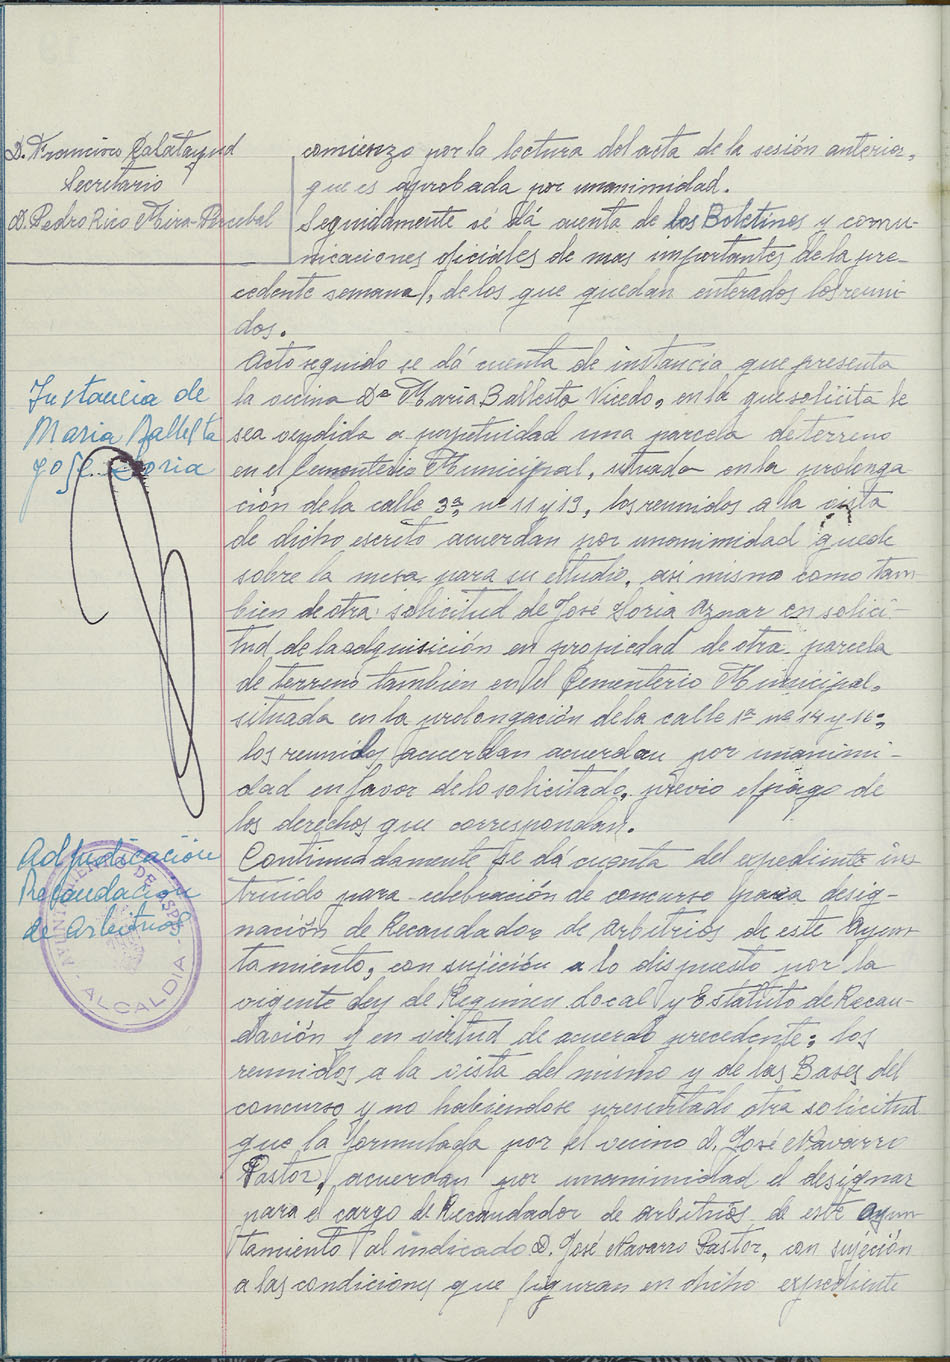 D. Francisco Calatayud
Secretario
D. Pedro Rico Mira-Percebal
comienzo por la lectura del acta de la sesión anterior,
que es aprobada por unanimidad.
Seguidamente se dá cuenta de los Boletines y comu-
nicaciones oficiales de mas importantes de la pre-
cedente semana, de los que quedan enterados los reuni-
dos.
Instancia de
Maria Ballesta
y José Soria
Acto seguido se dá cuenta de instancia que presenta
la vecina Dª Maria Ballesta Vicedo, en la que solicita le
sea vendida a perpetuidad una parcela de terreno
en el Cementerio Municipal, situada en la prolonga
ción de la calle 3ª, nº 11 y 13, los reunidos a la vista
de dicho escrito acuerdan por unanimidad quede
sobre la mesa para su estudio, asi mismo como tam-
bien de otra solicitud de José Soria Aznar en solici-
tud de la adquisición en propiedad de otra parcela
de terreno tambien en el Cementerio Municipal,
situada en la prolongación de la calle 1ª nº 14 y 16;
los reunidos acuerdan acuerdan por unanimi-
dad en favor de lo solicitado, previo el pago de
los derechos que correspondan.
Adjudicación
Recaudación
de Arbitrios
AYUNTAMIENTO DE ASPE
- ALCALDIA -
Continuadamente se dá cuenta del expediente ins
truido para celebración de concurso para desig-
nación de Recaudador de Arbitrios de este Ayun-
tamiento, con sujición a lo dispuesto por la
vigente Ley de Regimen Local y Estatuto de Recau-
dación y en virtud de acuerdo precedente; los
reunidos a la vista del mismo y de las Bases del
concurso y no habiendose presentado otra solicitud
que la formulada por el vecino D. José Navarro
Pastor, acuerdan por unanimidad el designar
para el cargo de Recaudador de arbitrios de este Ayun-
tamiento al indicado D. José Navarro Pastor, con sujeción
a las condiciones que figuran en dicho expediente